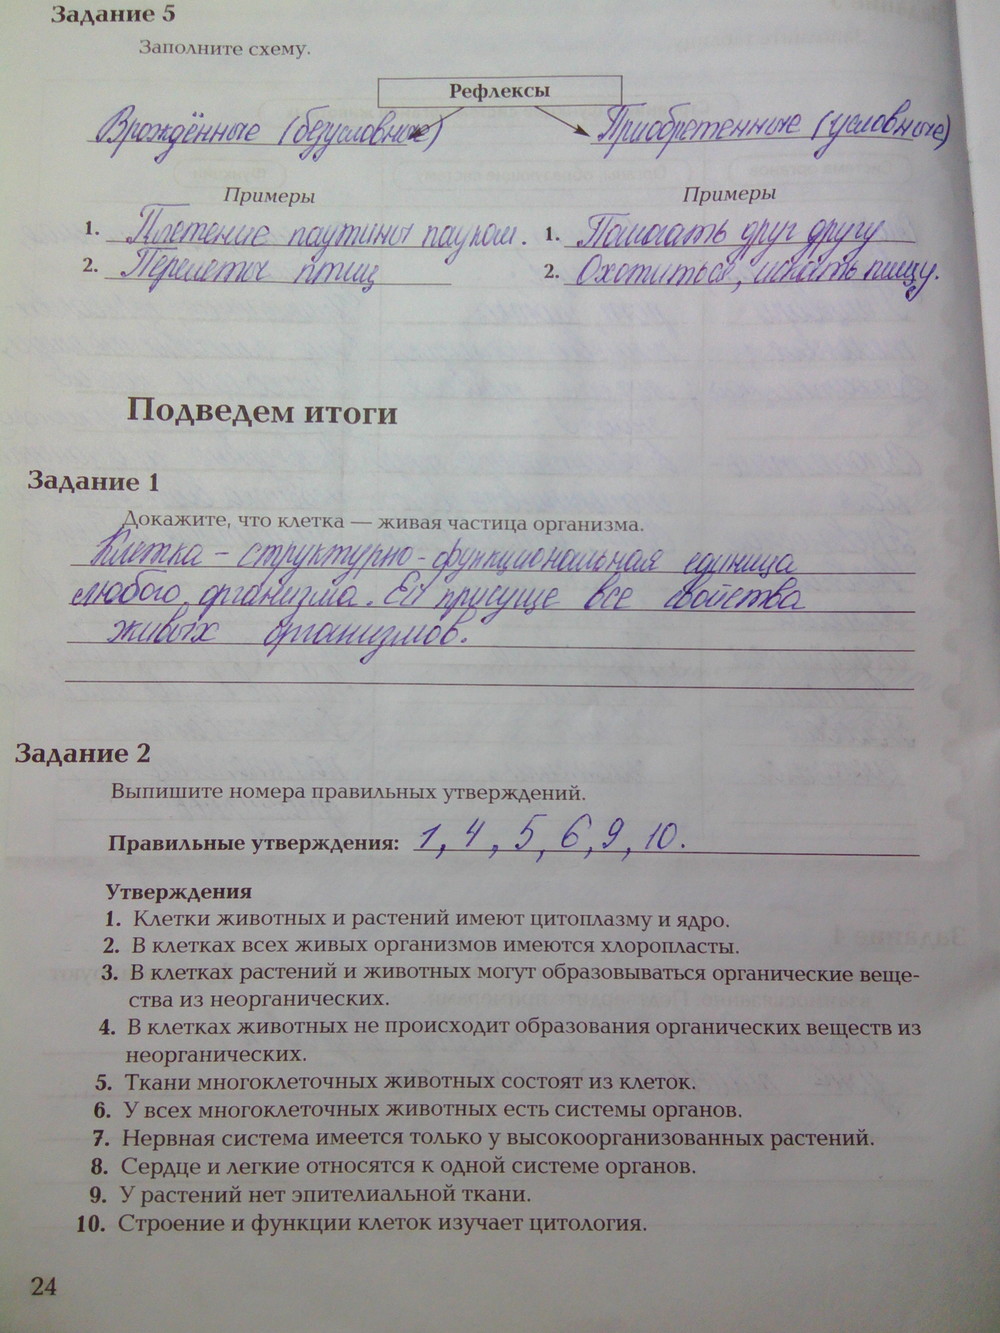 Задание 5
Заполните схему.
Рефлексы
Врождённые (безусловные)
Приобретенные (условные)
Примеры
Примеры
1. Плетение паутины пауком.
1. Помогать друг другу
2. Перелеты птиц
2. Охотиться, искать пищу.
Подведем итоги
Задание 1
Докажите, что клетка — живая частица организма.
Клетка - структурно-функциональная единица
любого организма. Ей присуще все свойства
живых организмов.
Задание 2
Выпишите номера правильных утверждений.
Правильные утверждения: 1, 4, 5, 6, 9, 10.
Утверждения
1. Клетки животных и растений имеют цитоплазму и ядро.
2. В клетках всех живых организмов имеются хлоропласты.
3. В клетках растений и животных могут образовываться органические веще-
ства из неорганических.
4. В клетках животных не происходит образования органических веществ из
неорганических.
5. Ткани многоклеточных животных состоят из клеток.
6. У всех многоклеточных животных есть системы органов.
7. Нервная система имеется только у высокоорганизованных растений.
8. Сердце и легкие относятся к одной системе органов.
9. У растений нет эпителиальной ткани.
10. Строение и функции клеток изучает цитология.
24